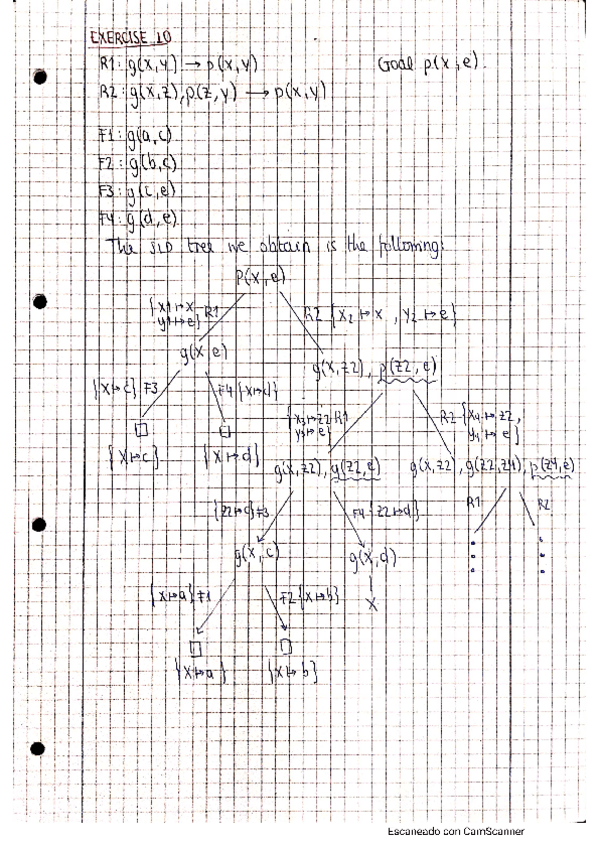 EXERCISE 10
R1: g(x,y) → p(x,y) Goal p(x,e)
R2: g(x,z), p(z,y) → p(x,y)
F1: g(a,c)
F2: g(b,c)
F3: g(c,e)
F4: g(d,e)
The SLD tree we obtain is the following:
p(x,e)
{x1↦x
y1↦e} R1
R2 {x2↦x, y2↦e}
g(x,e)
g(x,z2), p(z2,e)
{x↦c} F3
F4 {x↦d}
{x3↦z2 R1
y3↦e}
R2 {x4↦z2,
y4↦e}
□ □
{x↦c} {x↦d}
g(x,z2), g(z2,e) g(x,z2), g(z2,z4), p(z4,e)
R1 R2
{z2↦c} F3 F4 {z2↦d}
g(x,c) g(x,d)
{x↦a} F1 F2 {x↦b} X
□ □
{x↦a} {x↦b}
Escaneado con CamScanner